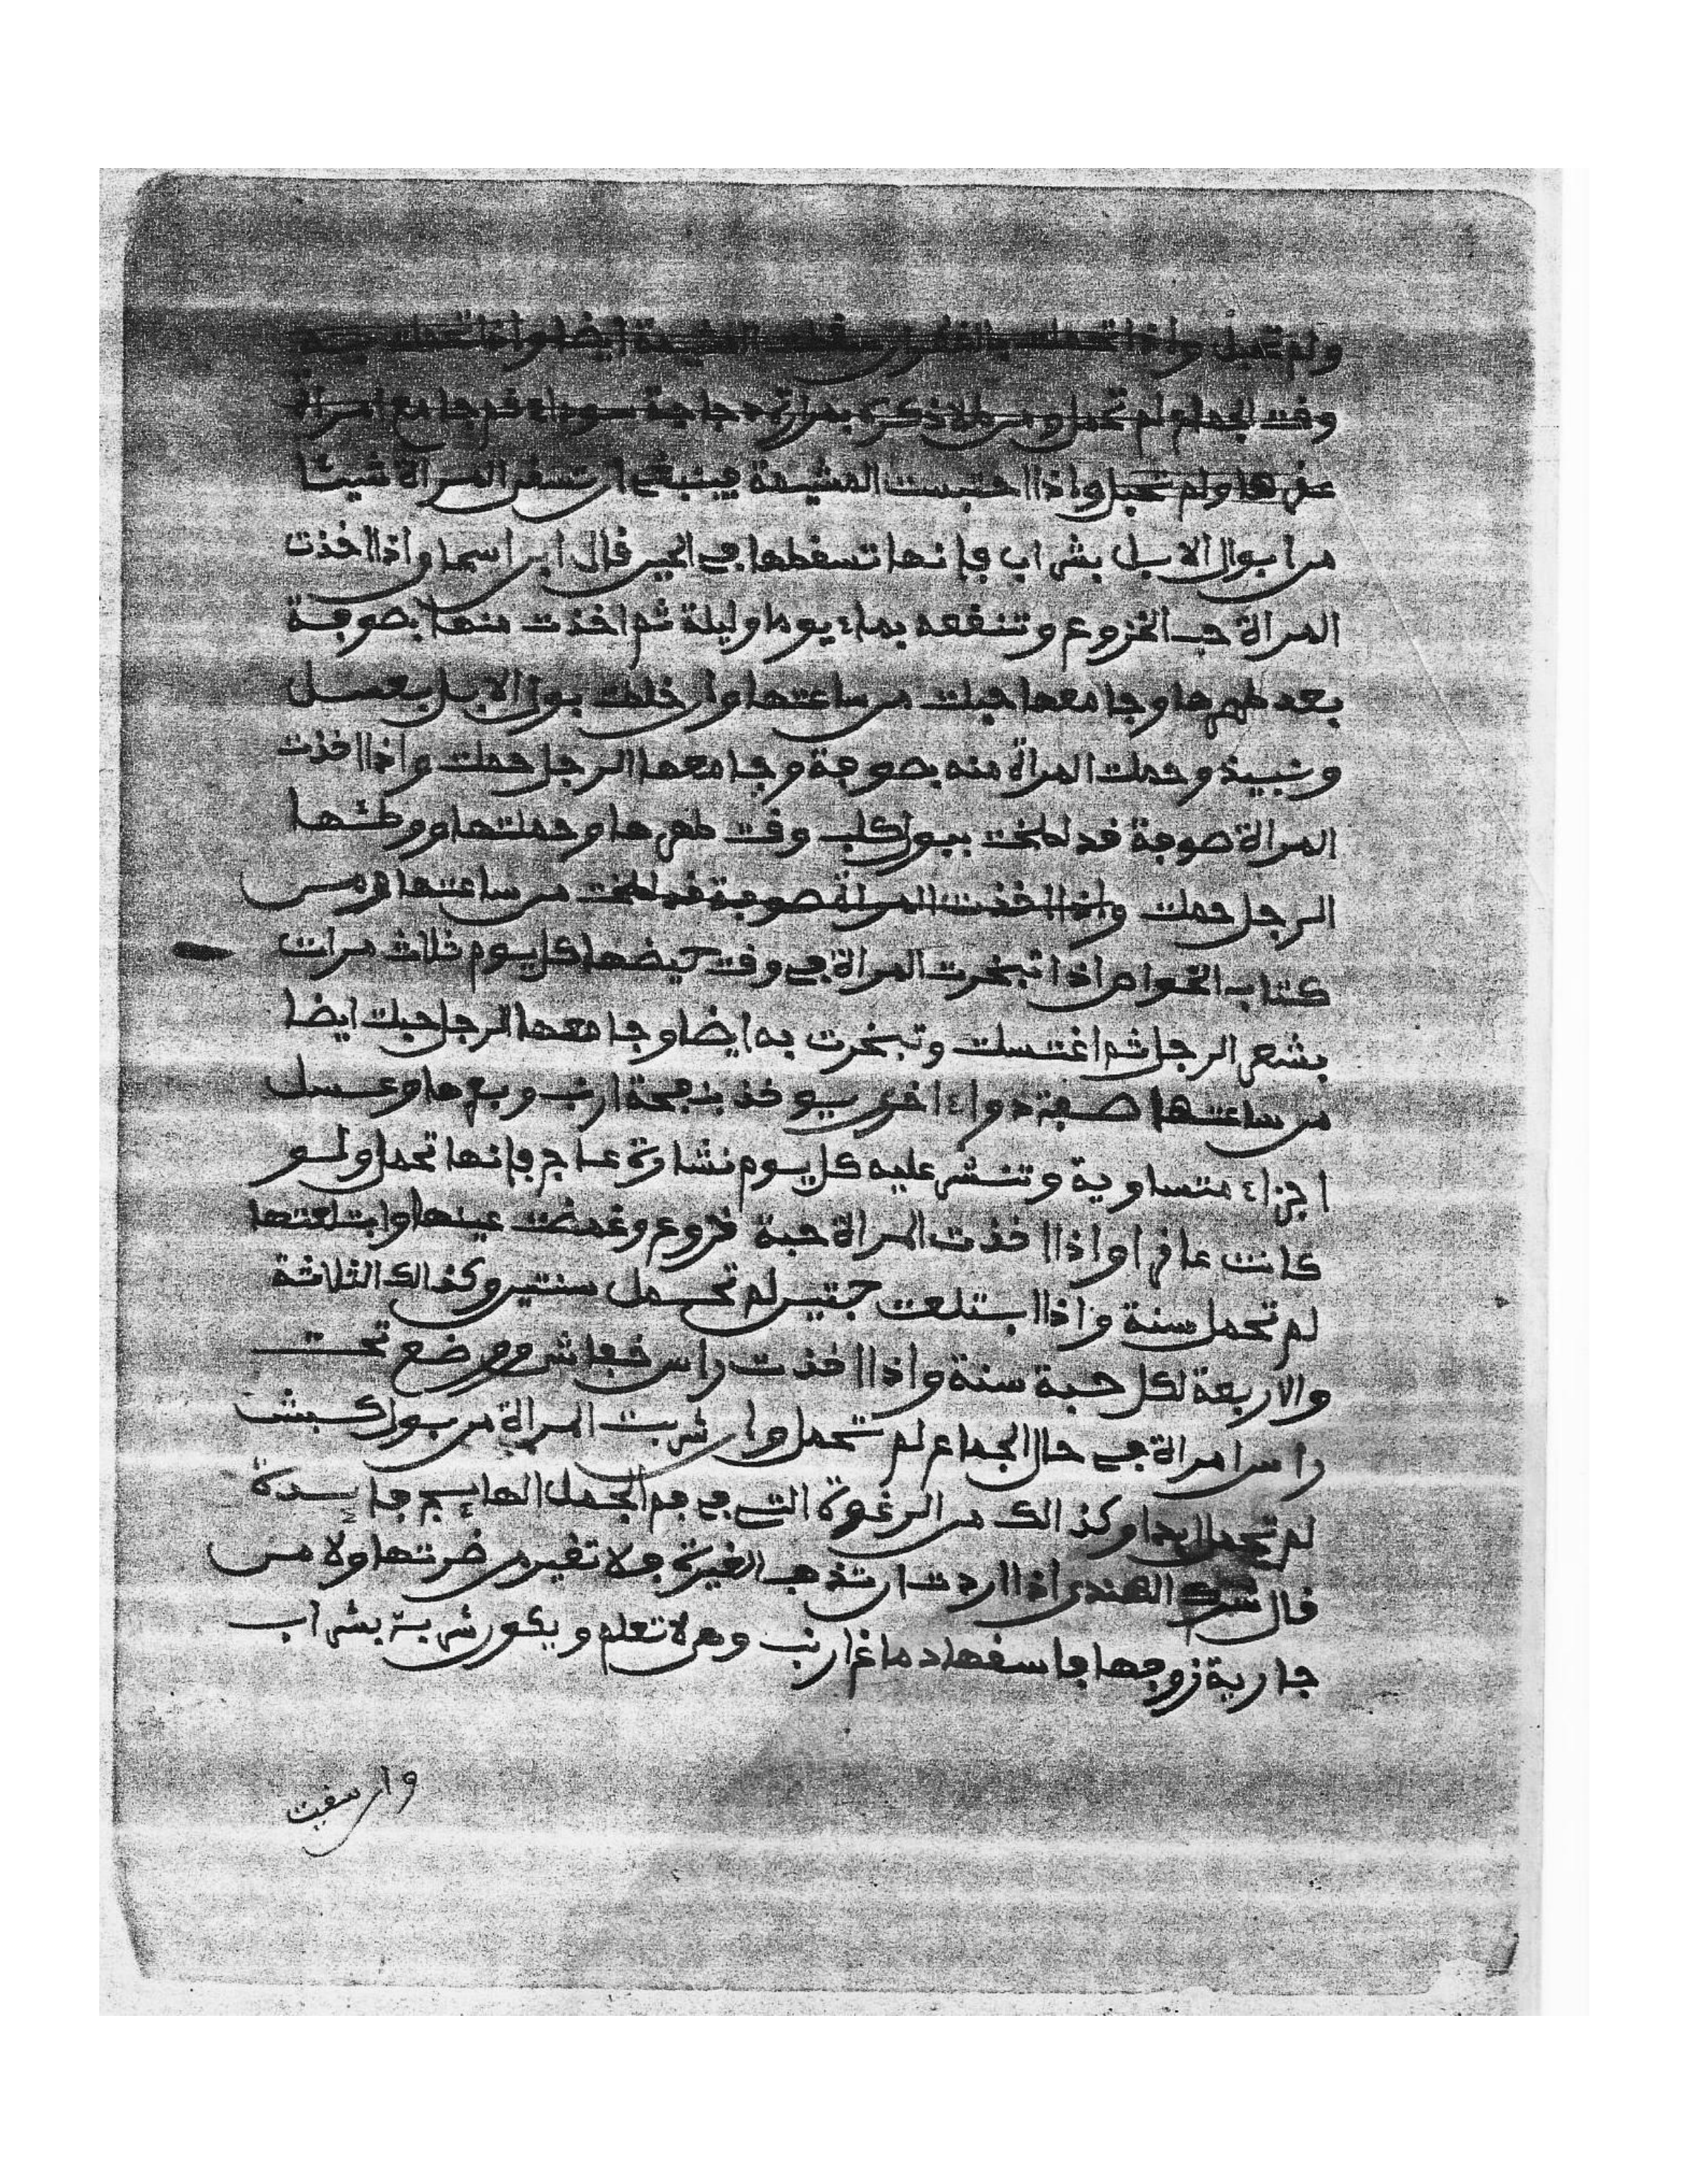 ولم تحبل واذا تحملت بالقطران سقطت المشيمة ايضا واذا تحملت به
وقت الجماع لم تحمل ومن طلا ذكره بمرارة دجاجة سوداء ثم جامع امراة
عقرها ولم تحبل واذا احتبست المشيمة فينبغي ان تسقى المراة شيئا
من ابوال الابل بشراب فانها تسقطها في الحين قال ابن اسما واذا اخذت
المراة حب الخروع وتنفعه بماء يوما وليلة ثم اخذت منها بصوفة
بعد طهرها وجامعها حبلت من ساعتها وان خلت بول الابل بعسل
ونبيذ وحملت المراة منه بصوفة وجامعها الرجل حملت واذا اخذت
المراة صوفة قد لطخت ببول كلب وقت طهرها وحملتها ووطئها
الرجل حملت واذا اخذت المراة صوفة قد لطخت من ساعتها ومن
كتاب الخواص اذا تبخرت المراة في وقت حيضها كل يوم ثلاث مرات
بشعر الرجل ثم اغتسلت وتبخرت به ايضا وجامعها الرجل حبلت ايضا
من ساعتها صفة دواء اخرى يوخذ بنفحة ارنب وبعرها وعسل
اجزاء متساوية وتنشر عليه كل يوم نشارة عاج فانها تحمل ولو
كانت عاقرا واذا اخذت المراة حبة خروع وغمضت عينها وابتلعتها
لم تحمل سنة واذا ابتلعت حبتين لم تحمل سنتين وكذالك الثلاثة
والاربعة لكل حبة سنة واذا اخذت راس خفاش ووضع تحت
راس امراة في حال الجماع لم تحمل وان شربت المراة من بول كبش
لم تحمل ابدا وكذالك من الرغوة التي في فم الجمل الهايج فايدة
قال شرك الهندي اذا اردت ان تذهب الغيرة فلا تغير من ضرتها ولا من
جارية زوجها فاسقها دماغ ارنب وهي لا تعلم ويكون شربة بشراب
وان سقيت